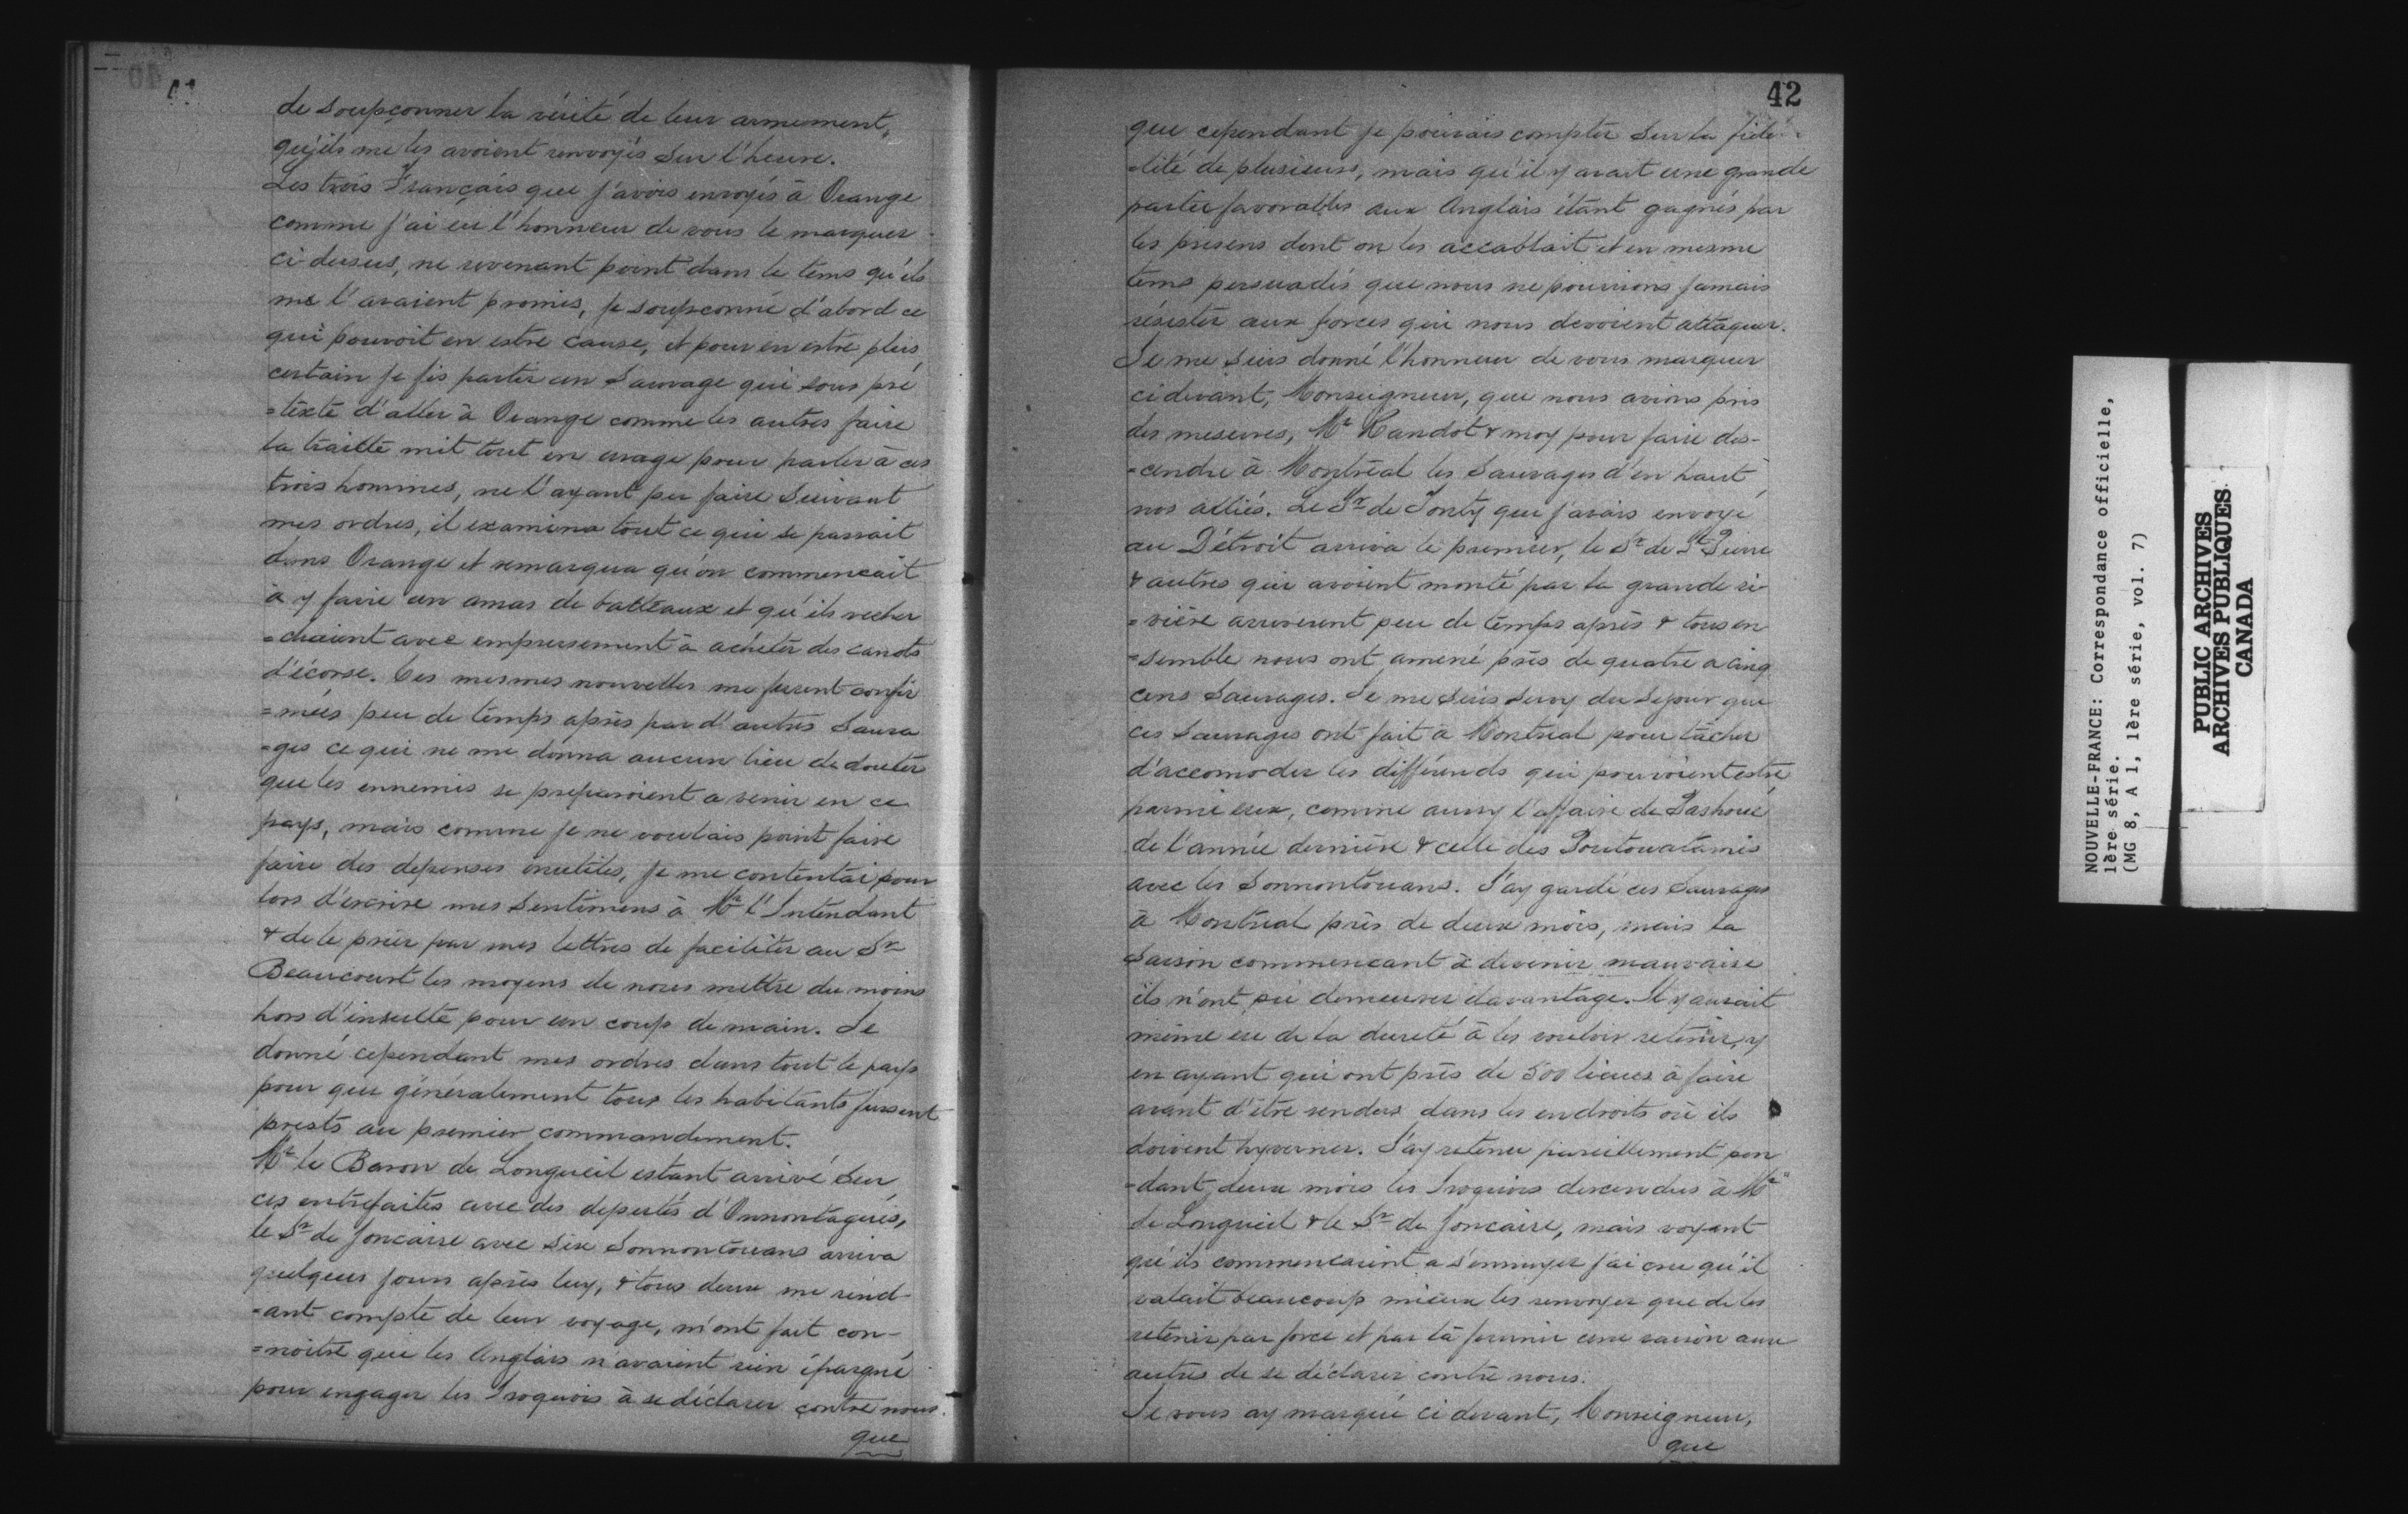 41
de soupçonner la vérité de leur armement,
qu'ils me les avoient renvoyés sur l'heure.
Les trois Français que j'avois envoyés à Orange
comme j'ai eu l'honneur de vous le marquer
ci-dessus, ne revenant point dans le tems qu'ils
me l'avaient promis, je soupçonné d'abord ce
qui pouvoit en estre cause, et pour en estre plus
certain je fis partir un Sauvage qui sous pré
=texte d'aller à Orange comme les autres faire
la traitte mit tout en usage pour parler à ces
trois hommes, ne l'ayant pu faire suivant
mes ordres, il examina tout ce qui se passait
dans Orange et remarqua qu'on commencait
à y faire un amas de batteaux et qu'ils recher
=chaient avec empressement à achéter des canots
d'écorse. Ces mesmes nouvelles me furent confir
=mées peu de temps après par d'autres Sauva
=ges ce qui ne me donna aucun lieu de douter
que les ennemis se preparoient a venir en ce
pays, mais comme je ne voulais point faire
faire des depenses inutiles, je me contentai pour
lors d'escrire mes sentimens à Mr l'Intendant
& de le prier par mes lettres de faciliter au Sr
Beaucourt les moyens de nous mettre du moins
hors d'insulte pour un coup de main. Je
donné cependant mes ordres dans tout le pays
pour que généralement tous les habitants fussent
prests au premier commandement.
Mr le Baron de Longueil estant arrivé sur
ces entrefaites avec des deputés d'Onnontagués,
le Sr de Joncaire avec six Sonnontouans arriva
quelques jours après luy, & tous deux me rend-
=ant compte de leur voyage, m'ont fait con-
=noitre que les Anglais n'avaient rien épargné
pour engager les Iroquois à se déclarer contre nous.
que
42
que cependant je pouvais compter sur la fidé-
=lité de plusieurs, mais qu'il y avait une grande
partie favorables aux Anglais étant gagnés par
les presens dont on les accablait et en mesme
tems persuadés que nous ne pourrions jamais
résister aux forces qui nous devoient attaquer.
Je me suis donné l'honneur de vous marquer
cidevant, Monseigneur, que nous avions pris
des mesures, Mr Raudot & moy pour faire des-
=cendre à Montréal les Sauvages d'en haut
nos alliés. Le Sr de Tonty que j'avais envoyé
au Détroit arriva le premier, le Sr de St Pierre
& autres qui avoient monté par la grande ri-
=vière arriverent peu de temps après & tous en
=semble nous ont amené près de quatre a cinq
cens Sauvages. Je me suis servy du sejour que
ces Sauvages ont fait à Montréal pour tâcher
d'accomoder les différends qui pouvoient estre
parmi eux, comme aussy l'affaire de
de l'année dernière & celle des Poutouatamis
avec les Sonnontouans. J'ay gardé ces Sauvages
à Montréal près de deux mois, mais la
saison commencant à devenir mauvaise
ils n'ont pû demeurer davantage. Il y aurait
même eu de la dureté à les vouloir retenir, y
en ayant qui ont près de 500 lieues à faire
avant d'être rendus dans les endroits où ils
doivent hyverner. J'ay retenu pareillement pen
=dant deux mois les Iroquois descendus à Mr
de Longueil & le Sr de Joncaire, mais voyant
qu'ils commencaient a s'ennuyer j'ai cru qu'il
valait beaucoup mieux les renvoyer que de les
retenir par force et par là fournir une raison aux
autres de se déclarer contre nous.
Je vous ay marqué ci devant, Monseigneur,
que
NOUVELLE-FRANCE: Correspondance officielle,
1ère série.
(MG 8, A 1, 1ère série, vol. 7)
PUBLIC ARCHIVES
ARCHIVES PUBLIQUES
CANADA